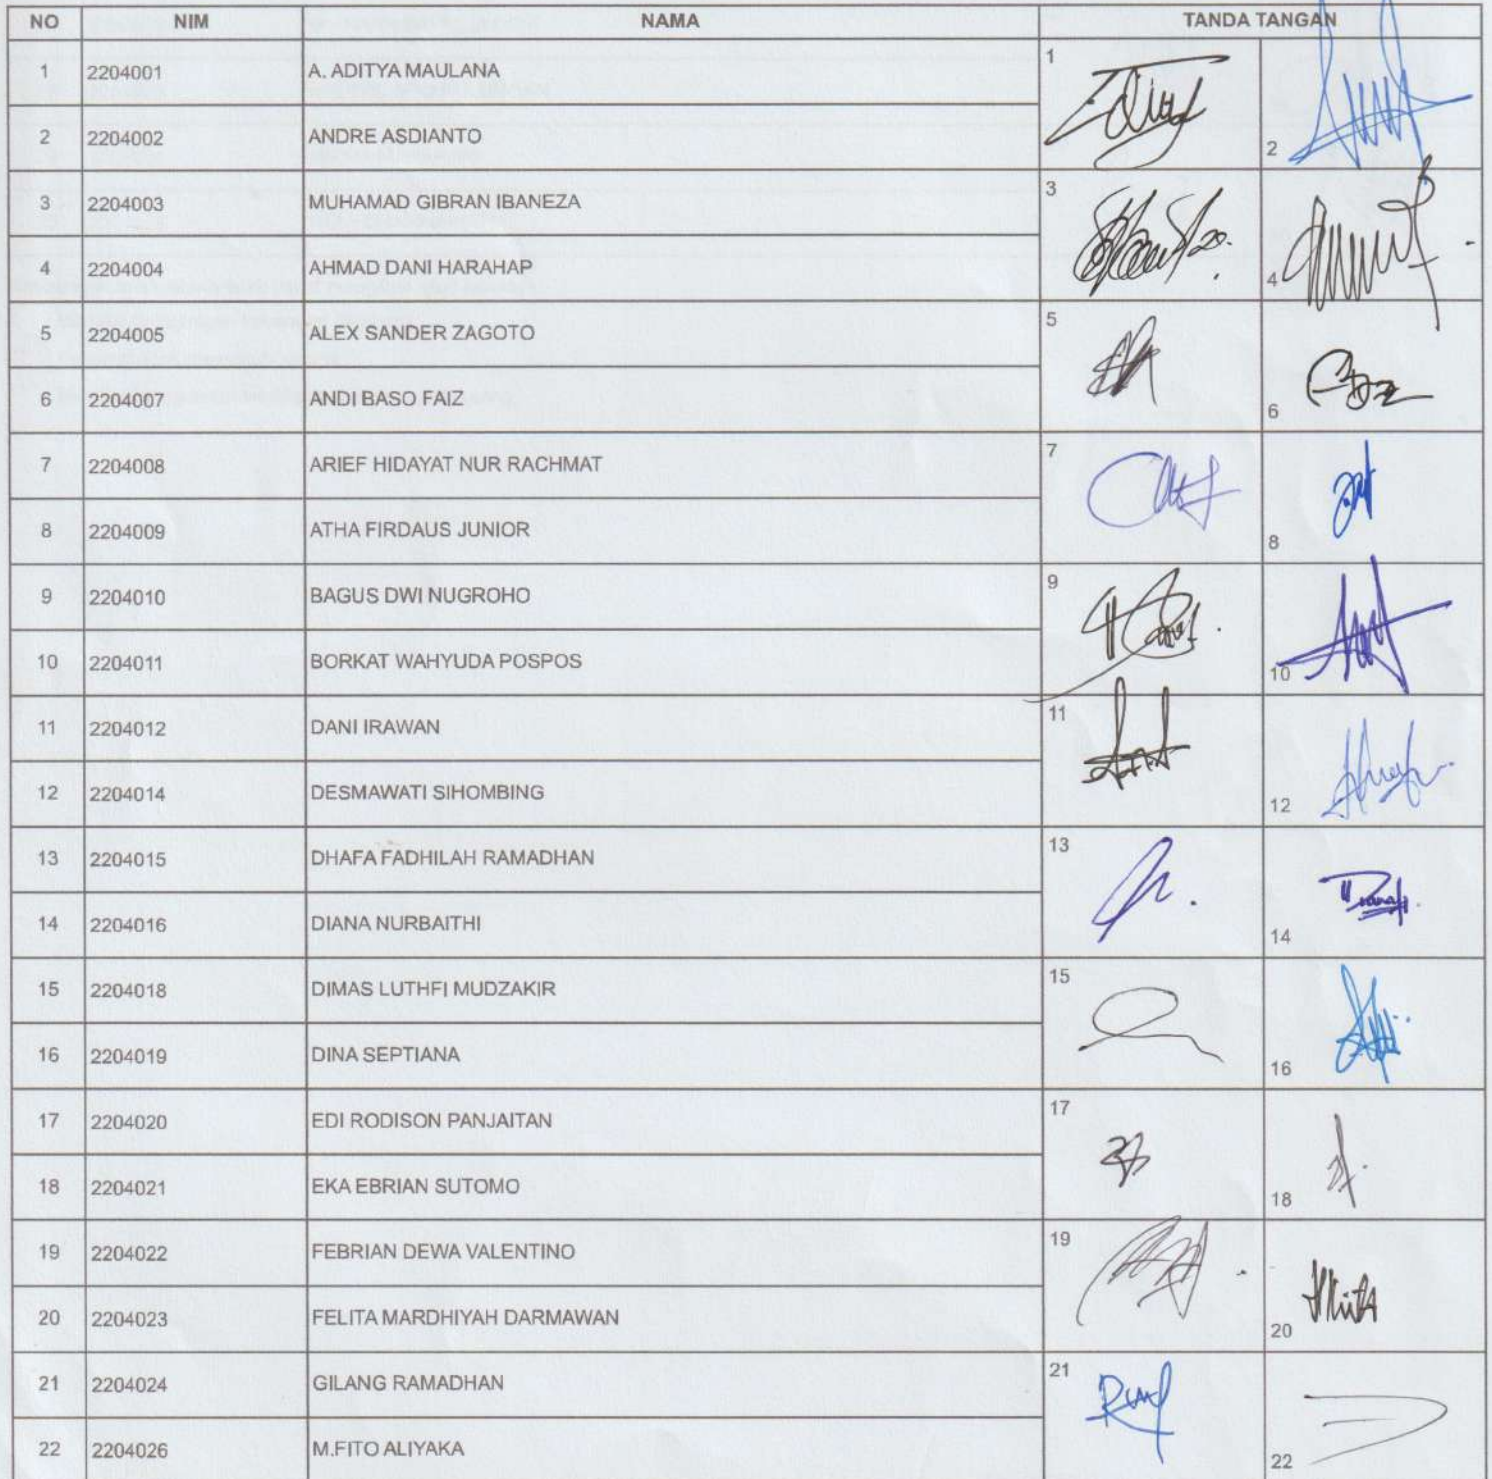 NO NIM NAMA TANDA TANGAN
1 2204001 A. ADITYA MAULANA 1
2 2204002 ANDRE ASDIANTO 2
3 2204003 MUHAMAD GIBRAN IBANEZA 3
4 2204004 AHMAD DANI HARAHAP 4
5 2204005 ALEX SANDER ZAGOTO 5
6 2204007 ANDI BASO FAIZ 6
7 2204008 ARIEF HIDAYAT NUR RACHMAT 7
8 2204009 ATHA FIRDAUS JUNIOR 8
9 2204010 BAGUS DWI NUGROHO 9
10 2204011 BORKAT WAHYUDA POSPOS 10
11 2204012 DANI IRAWAN 11
12 2204014 DESMAWATI SIHOMBING 12
13 2204015 DHAFA FADHILAH RAMADHAN 13
14 2204016 DIANA NURBAITHI 14
15 2204018 DIMAS LUTHFI MUDZAKIR 15
16 2204019 DINA SEPTIANA 16
17 2204020 EDI RODISON PANJAITAN 17
18 2204021 EKA EBRIAN SUTOMO 18
19 2204022 FEBRIAN DEWA VALENTINO 19
20 2204023 FELITA MARDHIYAH DARMAWAN 20
21 2204024 GILANG RAMADHAN 21
22 2204026 M.FITO ALIYAKA 22